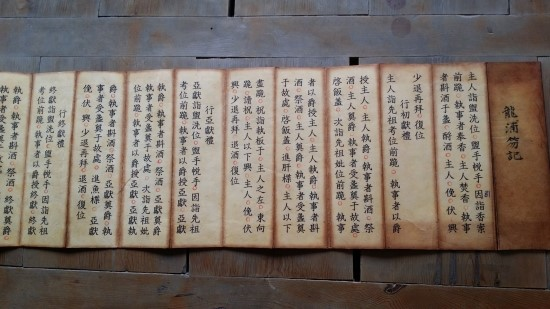 龍浦笏記
主人詣盥洗位 盥手帨手。因詣香案
前跪。執事者奉香。主人焚香 執事
者斟酒于盞。主人酹酒。主人 俛 伏 興
少退再拜 復位
行初獻禮
主人詣先祖考位前跪。執事者以爵
授主人。主人執爵。執事者斟酒。祭
酒。主人奠爵。執事者受盞奠于故處。
啓飯蓋。次詣先祖妣位前跪。執事
者以爵授主人。主人執爵。執事者斟
酒。祭酒。主人奠爵。執事者受盞奠
于故處。啓飯蓋。進肝 主人以下
盡跪。祝詣執板于。主人之左。東向
跪讀祝。主人以下興。主人 俛 伏
興。少退再拜 退酒復位
行亞獻禮
亞獻詣盥洗位 盥手帨手。因詣先祖
考位前跪。執事者以爵授亞獻。亞獻
執爵執事者斟酒。祭酒。亞獻奠爵
執事者受盞奠于故處 次詣先祖妣
位前跪。執事者以爵授亞獻。亞獻執
爵 執事者斟酒。祭酒。亞獻奠爵 執
事者受盞奠于故處。退魚 亞獻
俛 伏 興 少退再拜 退酒復位
行終獻禮
終獻詣盥洗位 盥手帨手。因詣先祖
考位前跪。執事者以爵授終獻。終獻
執爵。執事者斟酒。祭酒。終獻奠爵。
執事者受盞奠